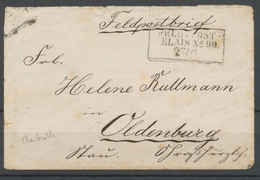 Feldpostbrief
FELDPOST-
RELAIS No 90.
27/6
Frl.
Helene Rullmann
in
Oldenburg
Stau.
Charleville